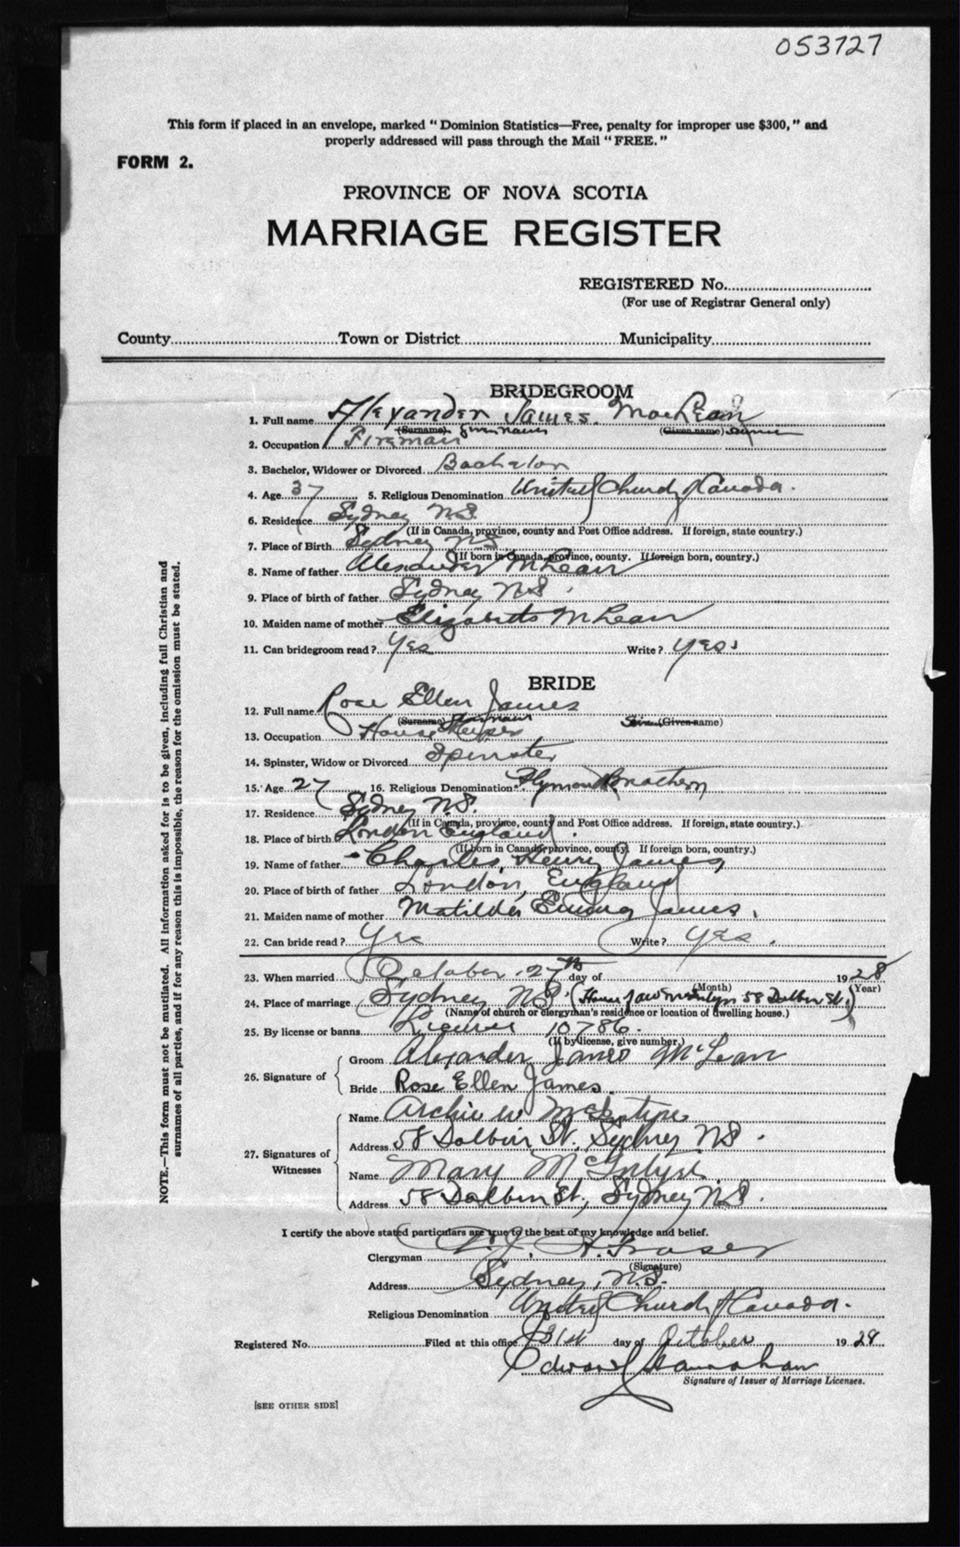 053727
This form if placed in an envelope, marked "Dominion Statistics—Free, penalty for improper use $300," and
properly addressed will pass through the Mail "FREE."
FORM 2.
PROVINCE OF NOVA SCOTIA
MARRIAGE REGISTER
REGISTERED No.
(For use of Registrar General only)
County Town or District Municipality
BRIDEGROOM
1. Full name Alexander James. MacLean
(Surname) given names (Given name) Surname
2. Occupation Fireman
3. Bachelor, Widower or Divorced Bachelor
4. Age 37 5. Religious Denomination United Church of Canada.
6. Residence Sydney N.S.
(If in Canada, province, county and Post Office address. If foreign, state country.)
7. Place of Birth Sydney N.S.
(If born in Canada, province, county. If foreign born, country.)
8. Name of father Alexander McLean
9. Place of birth of father Sydney N.S.
10. Maiden name of mother Elizabeth McLean
11. Can bridegroom read? Yes Write? Yes.
BRIDE
12. Full name Rose Ellen James
(Surname) (Given name)
13. Occupation House Keeper
14. Spinster, Widow or Divorced Spinster
15. Age 27 16. Religious Denomination Plymouth Brethern
17. Residence Sydney N.S.
(If in Canada, province, county and Post Office address. If foreign, state country.)
18. Place of birth London England.
(If born in Canada province, county. If foreign born, country.)
19. Name of father Charles Henry James,
20. Place of birth of father London, England
21. Maiden name of mother Matilda James.
22. Can bride read? Yes Write? Yes.
23. When married October 27th day of 1928
(Month) (Year)
24. Place of marriage Sydney N.S. (House 58 Dolbin St.)
(Name of church or clergyman's residence or location of dwelling house.)
25. By license or banns License 10786.
(If by license, give number.)
26. Signature of
Groom Alexander James McLean
Bride Rose Ellen James.
27. Signatures of Witnesses
Name Archie W McIntyre
Address 58 Dolbin St. Sydney N.S.
Name Mary McIntyre
Address 58 Dolbin St., Sydney N.S.
I certify the above stated particulars are true to the best of my knowledge and belief.
Clergyman Fraser
(Signature)
Address Sydney, N.S.
Religious Denomination United Church of Canada.
Registered No. Filed at this office 31st day of October 1928
Edward Hanrahan
Signature of Issuer of Marriage Licenses.
[SEE OTHER SIDE]
NOTE.—This form must not be mutilated. All information asked for is to be given, including full Christian and
surnames of all parties, and if for any reason this is impossible, the reason for the omission must be stated.